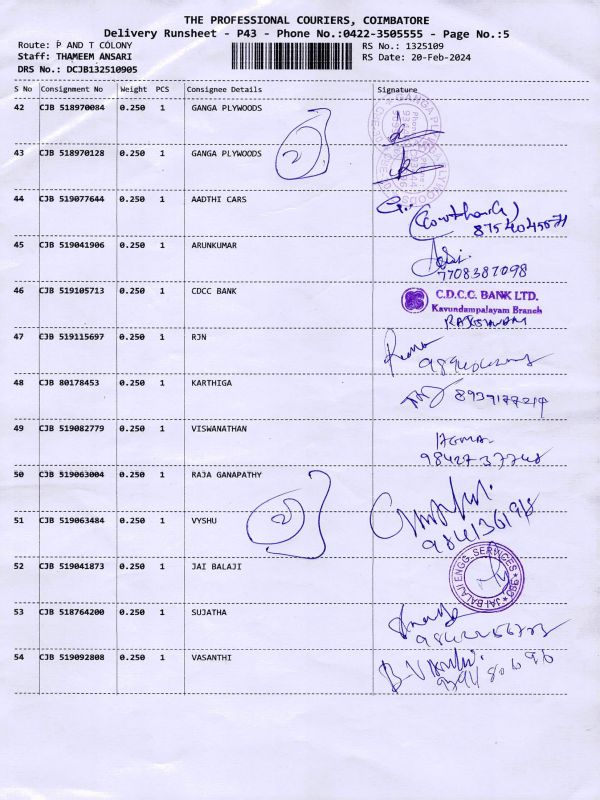 THE PROFESSIONAL COURIERS, COIMBATORE
Delivery Runsheet - P43 - Phone No.:0422-3505555 - Page No.:5
Route: P AND T COLONY
RS No.: 1325109
Staff: THAMEEM ANSARI
RS Date: 20-Feb-2024
DRS No.: DCJB132510905
S No Consignment No Weight PCS Consignee Details Signature
42 CJB 518970084 0.250 1 GANGA PLYWOODS
43 CJB 518970128 0.250 1 GANGA PLYWOODS
2
44 CJB 519077644 0.250 1 AADTHI CARS
45 CJB 519041906 0.250 1 ARUNKUMAR
7708387098
46 CJB 519105713 0.250 1 CDCC BANK
C.D.C.C. BANK LTD.
Kavundampalayam Branch
47 CJB 519115697 0.250 1 RJN
48 CJB 80178453 0.250 1 KARTHIGA
8939177219
49 CJB 519082779 0.250 1 VISWANATHAN
9842737748
50 CJB 519063004 0.250 1 RAJA GANAPATHY
51 CJB 519063484 0.250 1 VYSHU
2
52 CJB 519041873 0.250 1 JAI BALAJI
JAI BALAJI ENGG. SERVICES
53 CJB 518764200 0.250 1 SUJATHA
54 CJB 519092808 0.250 1 VASANTHI